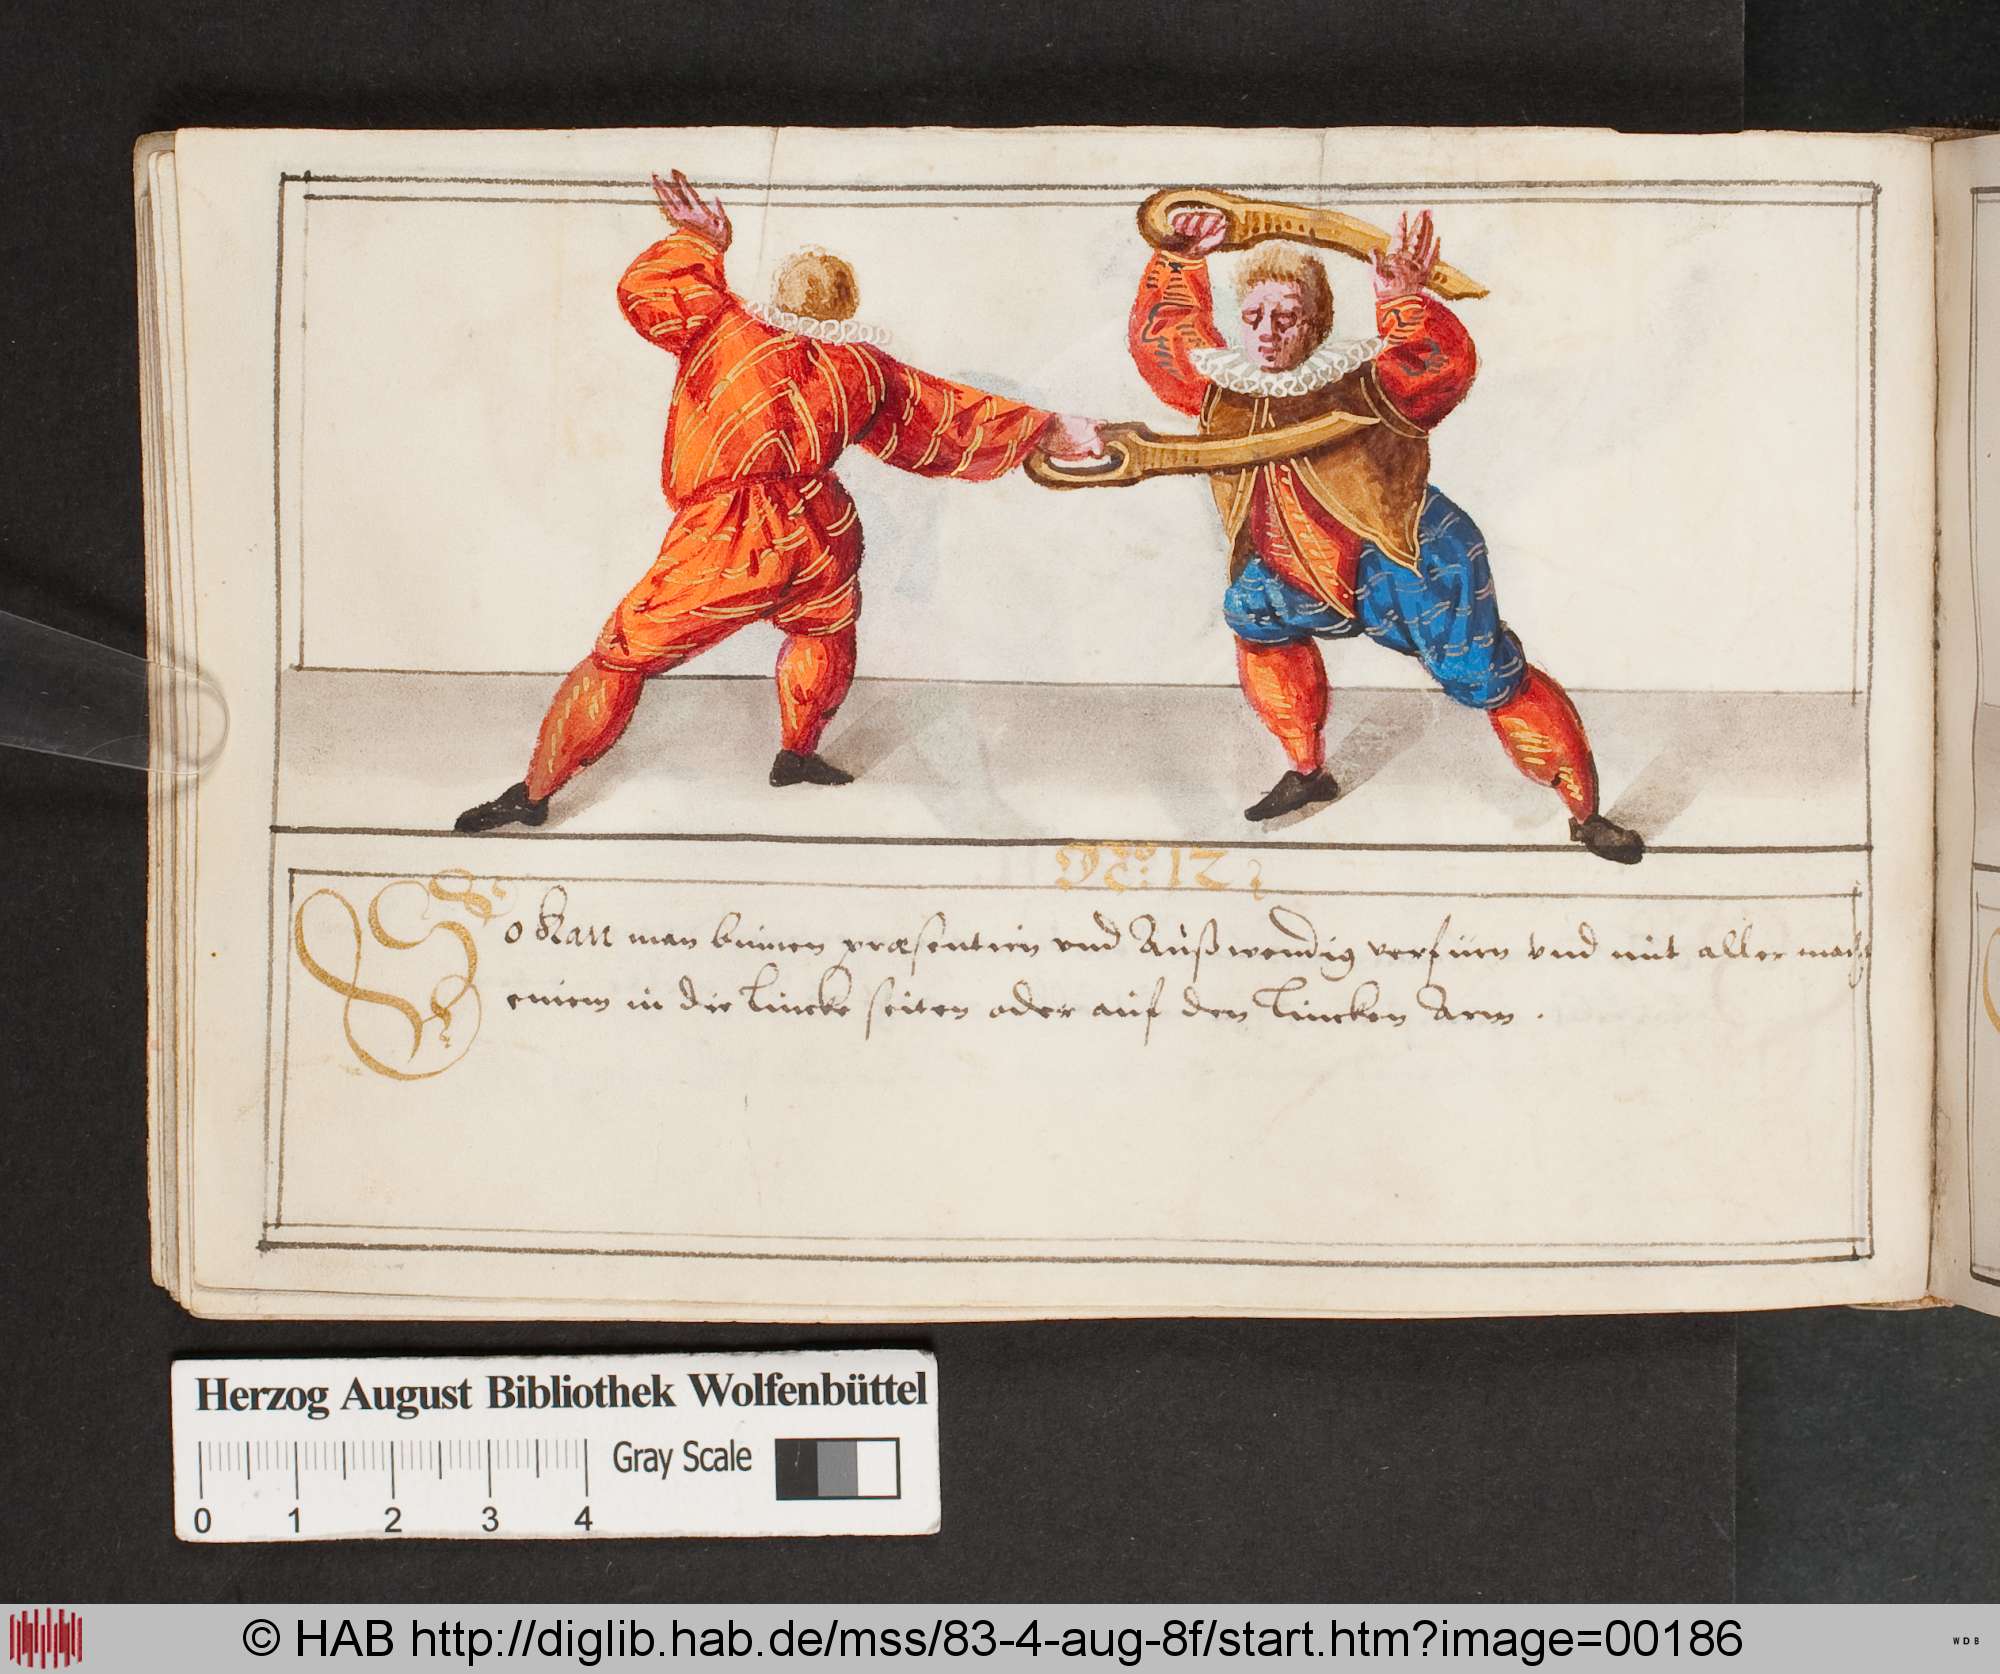 No: 12
So kan man binnen præsentirn vnd Außwendig verfürn vnd mit aller macht
einem in die lincke seiten oder auf den lincken Arm .
Herzog August Bibliothek Wolfenbüttel
Gray Scale
0 1 2 3 4
© HAB http://diglib.hab.de/mss/83-4-aug-8f/start.htm?image=00186
WDB